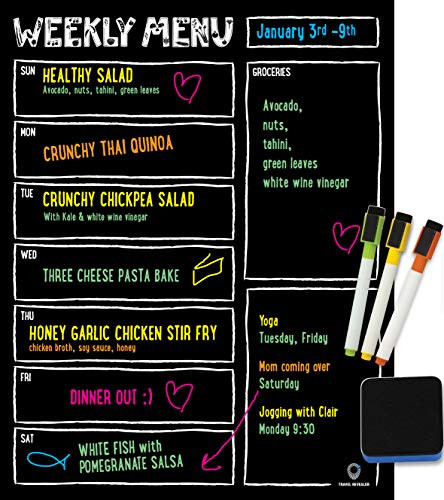 WEEKLY MENU
January 3rd -9th
SUN
HEALTHY SALAD
Avocado, nuts, tahini, green leaves
MON
CRUNCHY THAI QUINOA
TUE
CRUNCHY CHICKPEA SALAD
With Kale & white wine vinegar
WED
THREE CHEESE PASTA BAKE
THU
HONEY GARLIC CHICKEN STIR FRY
chicken broth, soy sauce, honey
FRI
DINNER OUT :)
SAT
WHITE FISH with
POMEGRANATE SALSA
GROCERIES
Avocado,
nuts,
tahini,
green leaves
white wine vinegar
Yoga
Tuesday, Friday
Mom coming over
Saturday
Jogging with Clair
Monday 9:30
TRAVEL REVEALER